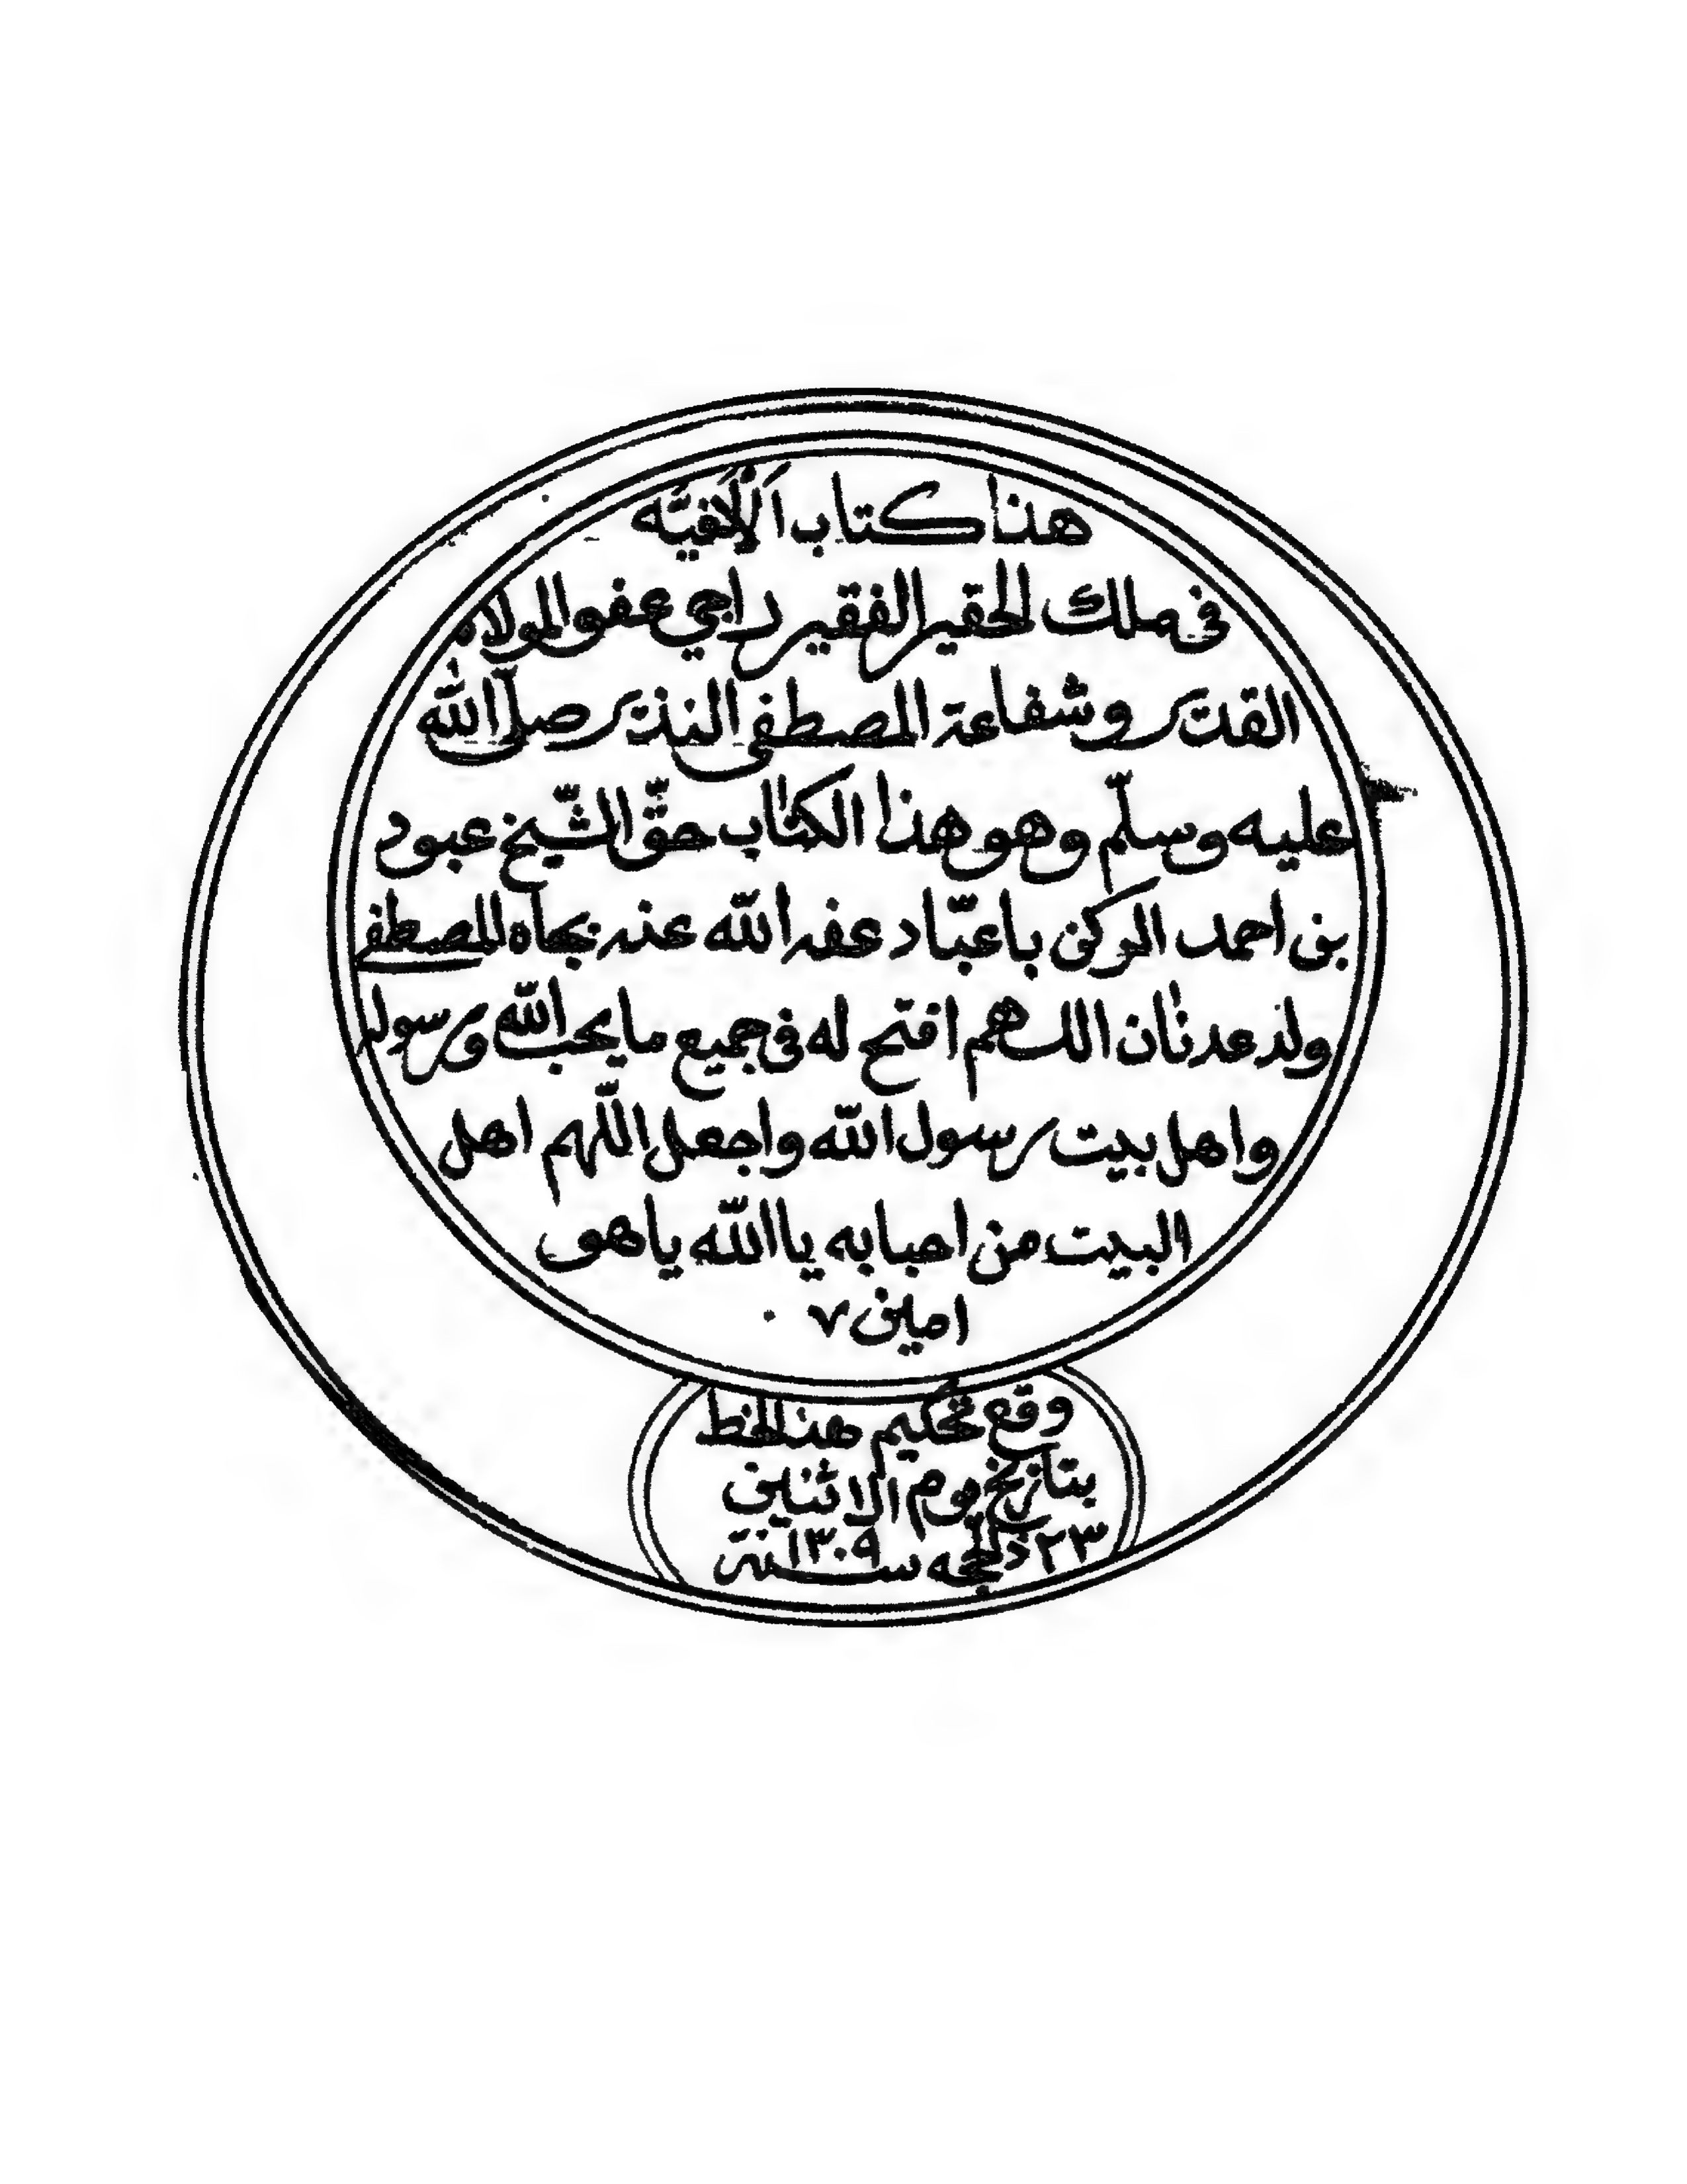 هذا كتاب اَلْأَلْفيَّه
في ملك الحقير الفقير راجي عفو المولاه
القدير وشفاعة المصطفى النذير صلّى الله
عليه وسلّم وهو هذا الكتاب حقّ الشّيخ عبود
بن احمد بن باعبّاد عفه الله عنه بجاه المصطفى
ولد عدنان اللهم افتح له في جميع ما يحب الله ورسوله
واهل بيت رسول الله واجعل اللّهم اهل
البيت من احبابه يا الله يا هو
امين ٧
وقع تحكيم هذ الخط
بتاريخ يوم الاثنين
٢٣ ذلحجه سنة ١٣٠٩